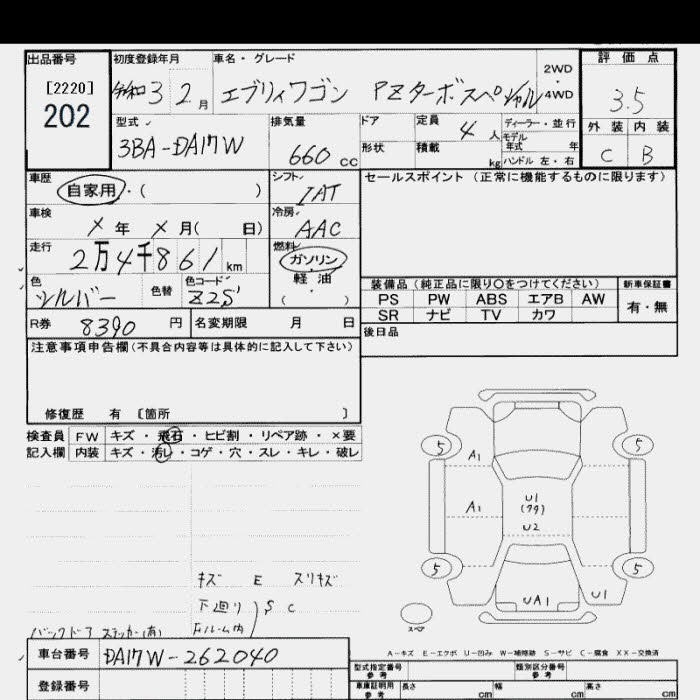 出品番号
[2220]
202
初度登録年月
令和3 2月
車名・グレード
エブリィワゴン PZターボスペシャル
2WD
・
4WD
評価点
3.5
外装 内装
C B
型式
3BA-DA17W
排気量
660 cc
ドア
形状
定員
4 人
積載
kg
ディーラー・並行
モデル
年式 年
ハンドル 左・右
車歴
自家用・( )
シフト
IAT
車検
X 年 X 月( 日)
冷房
AAC
走行
2万4千861 km
燃料
ガソリン・
軽油
・
( )
色
シルバー
色替
色コード
Z2S
R券 8390 円
名変期限 月 日
セールスポイント(正常に機能するものに限ります)
装備品(純正品に限り○をつけてください)
新車保証書
PS PW ABS エアB AW
SR ナビ TV カワ
有・無
後日品
注意事項申告欄(不具合内容等は具体的に記入して下さい)
修復歴 有 〔箇所 〕
検査員
記入欄
FW キズ・飛石・ヒビ割・リペア跡・×要
内装 キズ・汚レ・コゲ・穴・スレ・キレ・破レ
キズ E スリキズ
下廻り
F.ルーム内
S C
バックドア ステッカー(有)
5 5
A1
A1
U1
(ワク)
U2
5 5
UA1
U1
スペア
A-キズ E-エクボ U-凹み W-補修跡 S-サビ C-腐食 XX-交換済
車台番号 DA17W-262040
登録番号
型式指定番号
参考
類別区分番号
参考
車庫証明用
参考
長さ cm
幅 cm
高さ cm